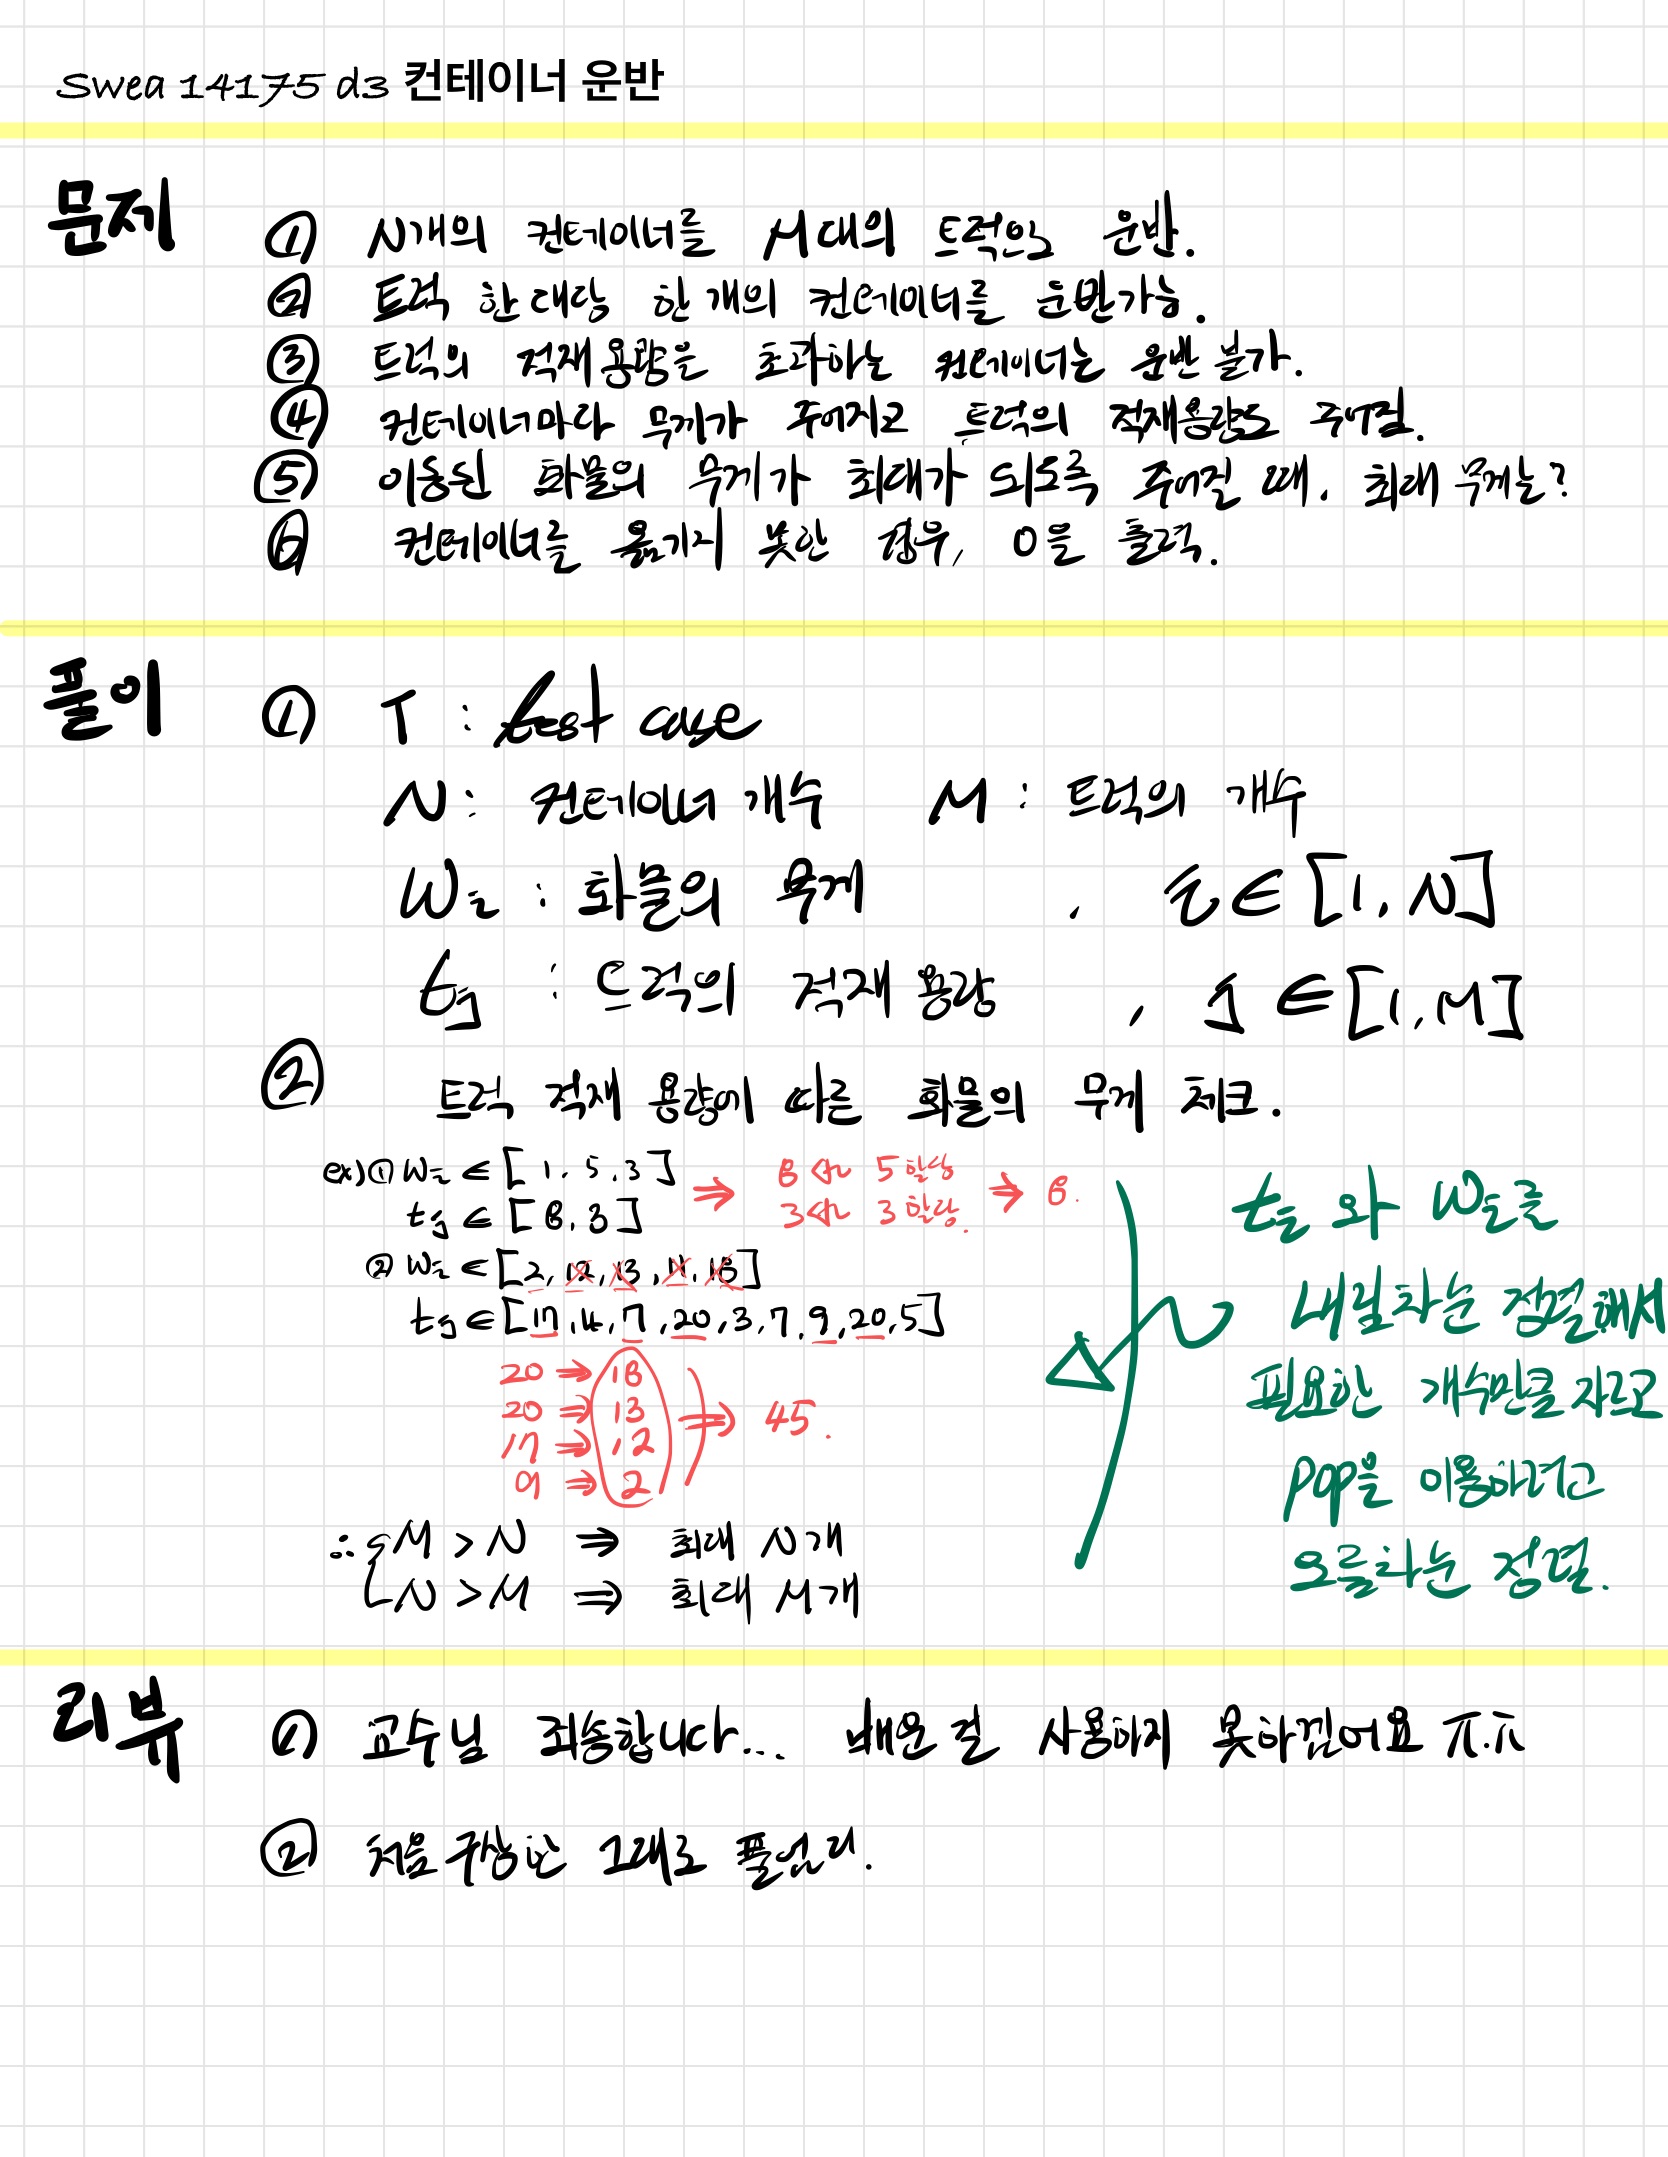 Swea 14175 d3 컨테이너 운반
문제
① N개의 컨테이너를 M대의 트럭으로 운반.
② 트럭 한대당 한개의 컨테이너를 운반가능.
③ 트럭의 적재용량을 초과하는 컨테이너는 운반 불가.
④ 컨테이너마다 무게가 주어지고 트럭의 적재용량도 주어짐.
⑤ 이송된 화물의 무게가 최대가 되도록 주어질 때, 최대 무게는?
⑥ 컨테이너를 옮기지 못한 경우, 0을 출력.
풀이
① T : test case
N : 컨테이너 개수 M : 트럭의 개수
Wi : 화물의 무게 , i ∈ [1, N]
tj : 트럭의 적재용량 , j ∈ [1, M]
② 트럭 적재 용량에 따른 화물의 무게 체크.
ex) ① Wi ∈ [1, 5, 3]
tj ∈ [8, 3]
⇒ 8에 5 할당
3에 3 할당.
⇒ 8.
② Wi ∈ [2, 12, 13, 11, 18]
tj ∈ [17, 4, 7, 20, 3, 7, 9, 20, 5]
20 ⇒ 18
20 ⇒ 13
17 ⇒ 12
9 ⇒ 2
⇒ 45.
∴ M > N ⇒ 최대 N개
N > M ⇒ 최대 M개
ti와 Wi를
내림차순 정렬해서
필요한 개수만큼 자르고
pop을 이용하려고
오름차순 정렬.
리뷰
① 교수님 죄송합니다... 배운걸 사용하지 못하겠어요 ㅠ.ㅠ
② 처음 구상한 그대로 풀었다.